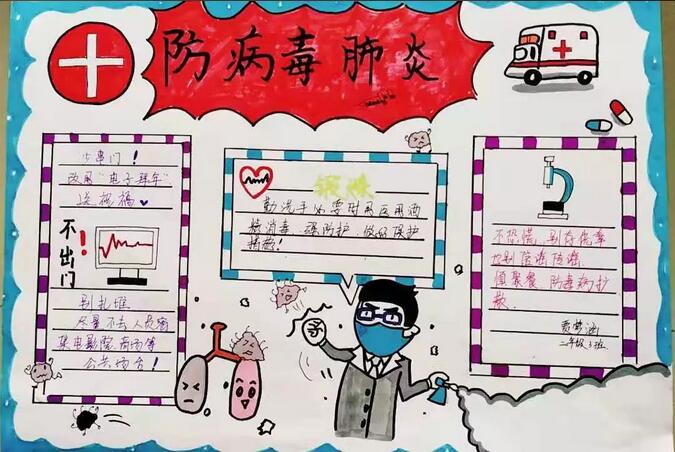 防病毒肺炎
少串门！
改用“电子拜年”
送祝福
不出门！
别扎堆
尽量不去人员密
集电影院、商场等
公共场合！
勤洗手必要时用医用酒
精消毒 强防护，做好保护
措施！
不恐慌，别存侥幸
慎聚餐 防毒病扩
散
二年级3班